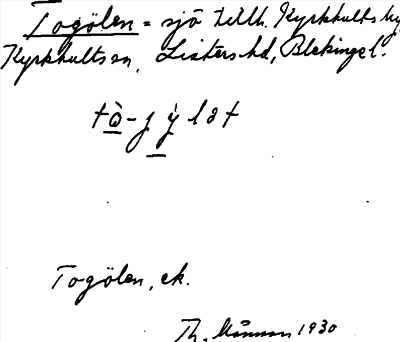 Togölen = sjö tillh. Kyrkhults by,
Kyrkhults sn, Listers hd, Blekinge l.
tò̱-j ỳ̱ lət
Togölen, ek.
Th. Månsson 1930